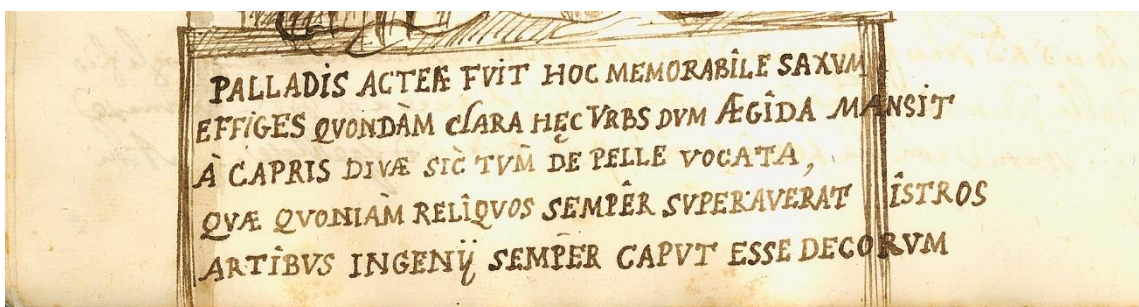 PALLADIS ACTEÆ FVIT HOC MEMORABILE SAXVM
EFFIGES QVONDÀM CLARA HĘC VRBS DVM ÆGIDA MANSIT
À CAPRIS DIVÆ SIC TVM DE PELLE VOCATA,
QVÆ QVONIÀM RELIQVOS SEMPER SVPERAVERAT ISTROS
ARTIBVS INGENIJ SEMPER CAPVT ESSE DECORVM